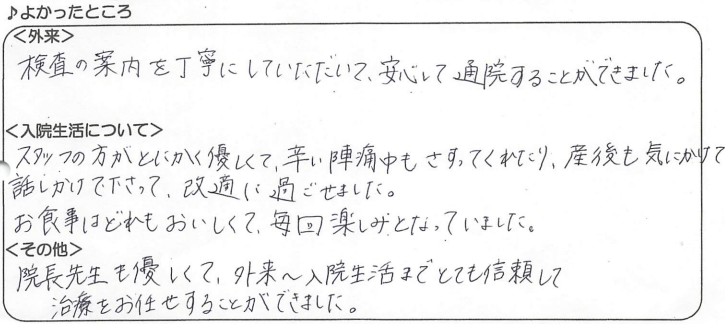 ♪よかったところ
<外来>
検査の案内を丁寧にしていただいて、安心して通院することができました。
<入院生活について>
スタッフの方がとにかく優しくて、辛い陣痛中もさすってくれたり、産後も気にかけて
話しかけて下さって、改適に過ごせました。
お食事はどれもおいしくて、毎回楽しみとなっていました。
<その他>
院長先生も優しくて、外来～入院生活までとても信頼して
治療をお任せすることができました。